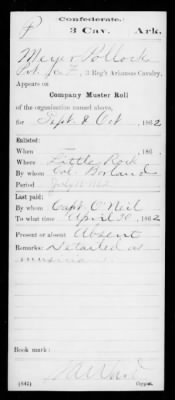 Confederate.
P 3 Cav. Ark.
Meyer Pollock
Pvt, Co. F, 3 Reg't Arkansas Cavalry.
Appears on
Company Muster Roll
of the organization named above,
for Sept & Oct, 1862
Enlisted:
When , 186 .
Where Little Rock
By whom Col. Borland
Period
Last paid:
By whom Capt. O'Neil
To what time April 30, 1862
Present or absent Absent
Remarks: Detailed as
musician
Book mark:
(642) Copyist.